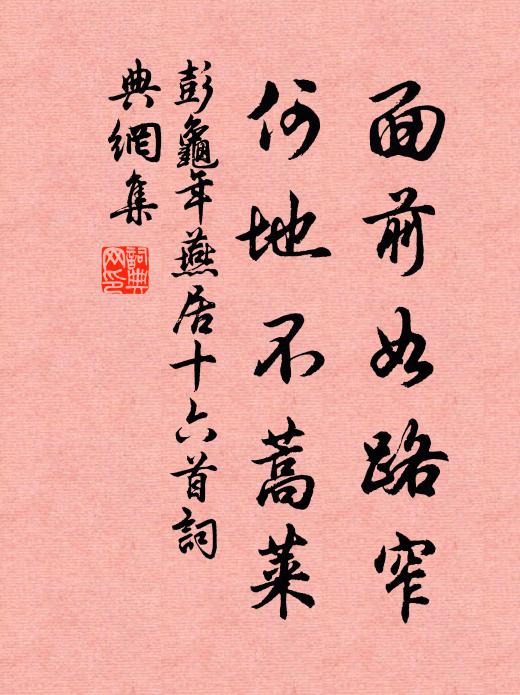 面前如路窄
何地不蒿莱
彭龜年燕居十六首詞
典網集
詞典
网印